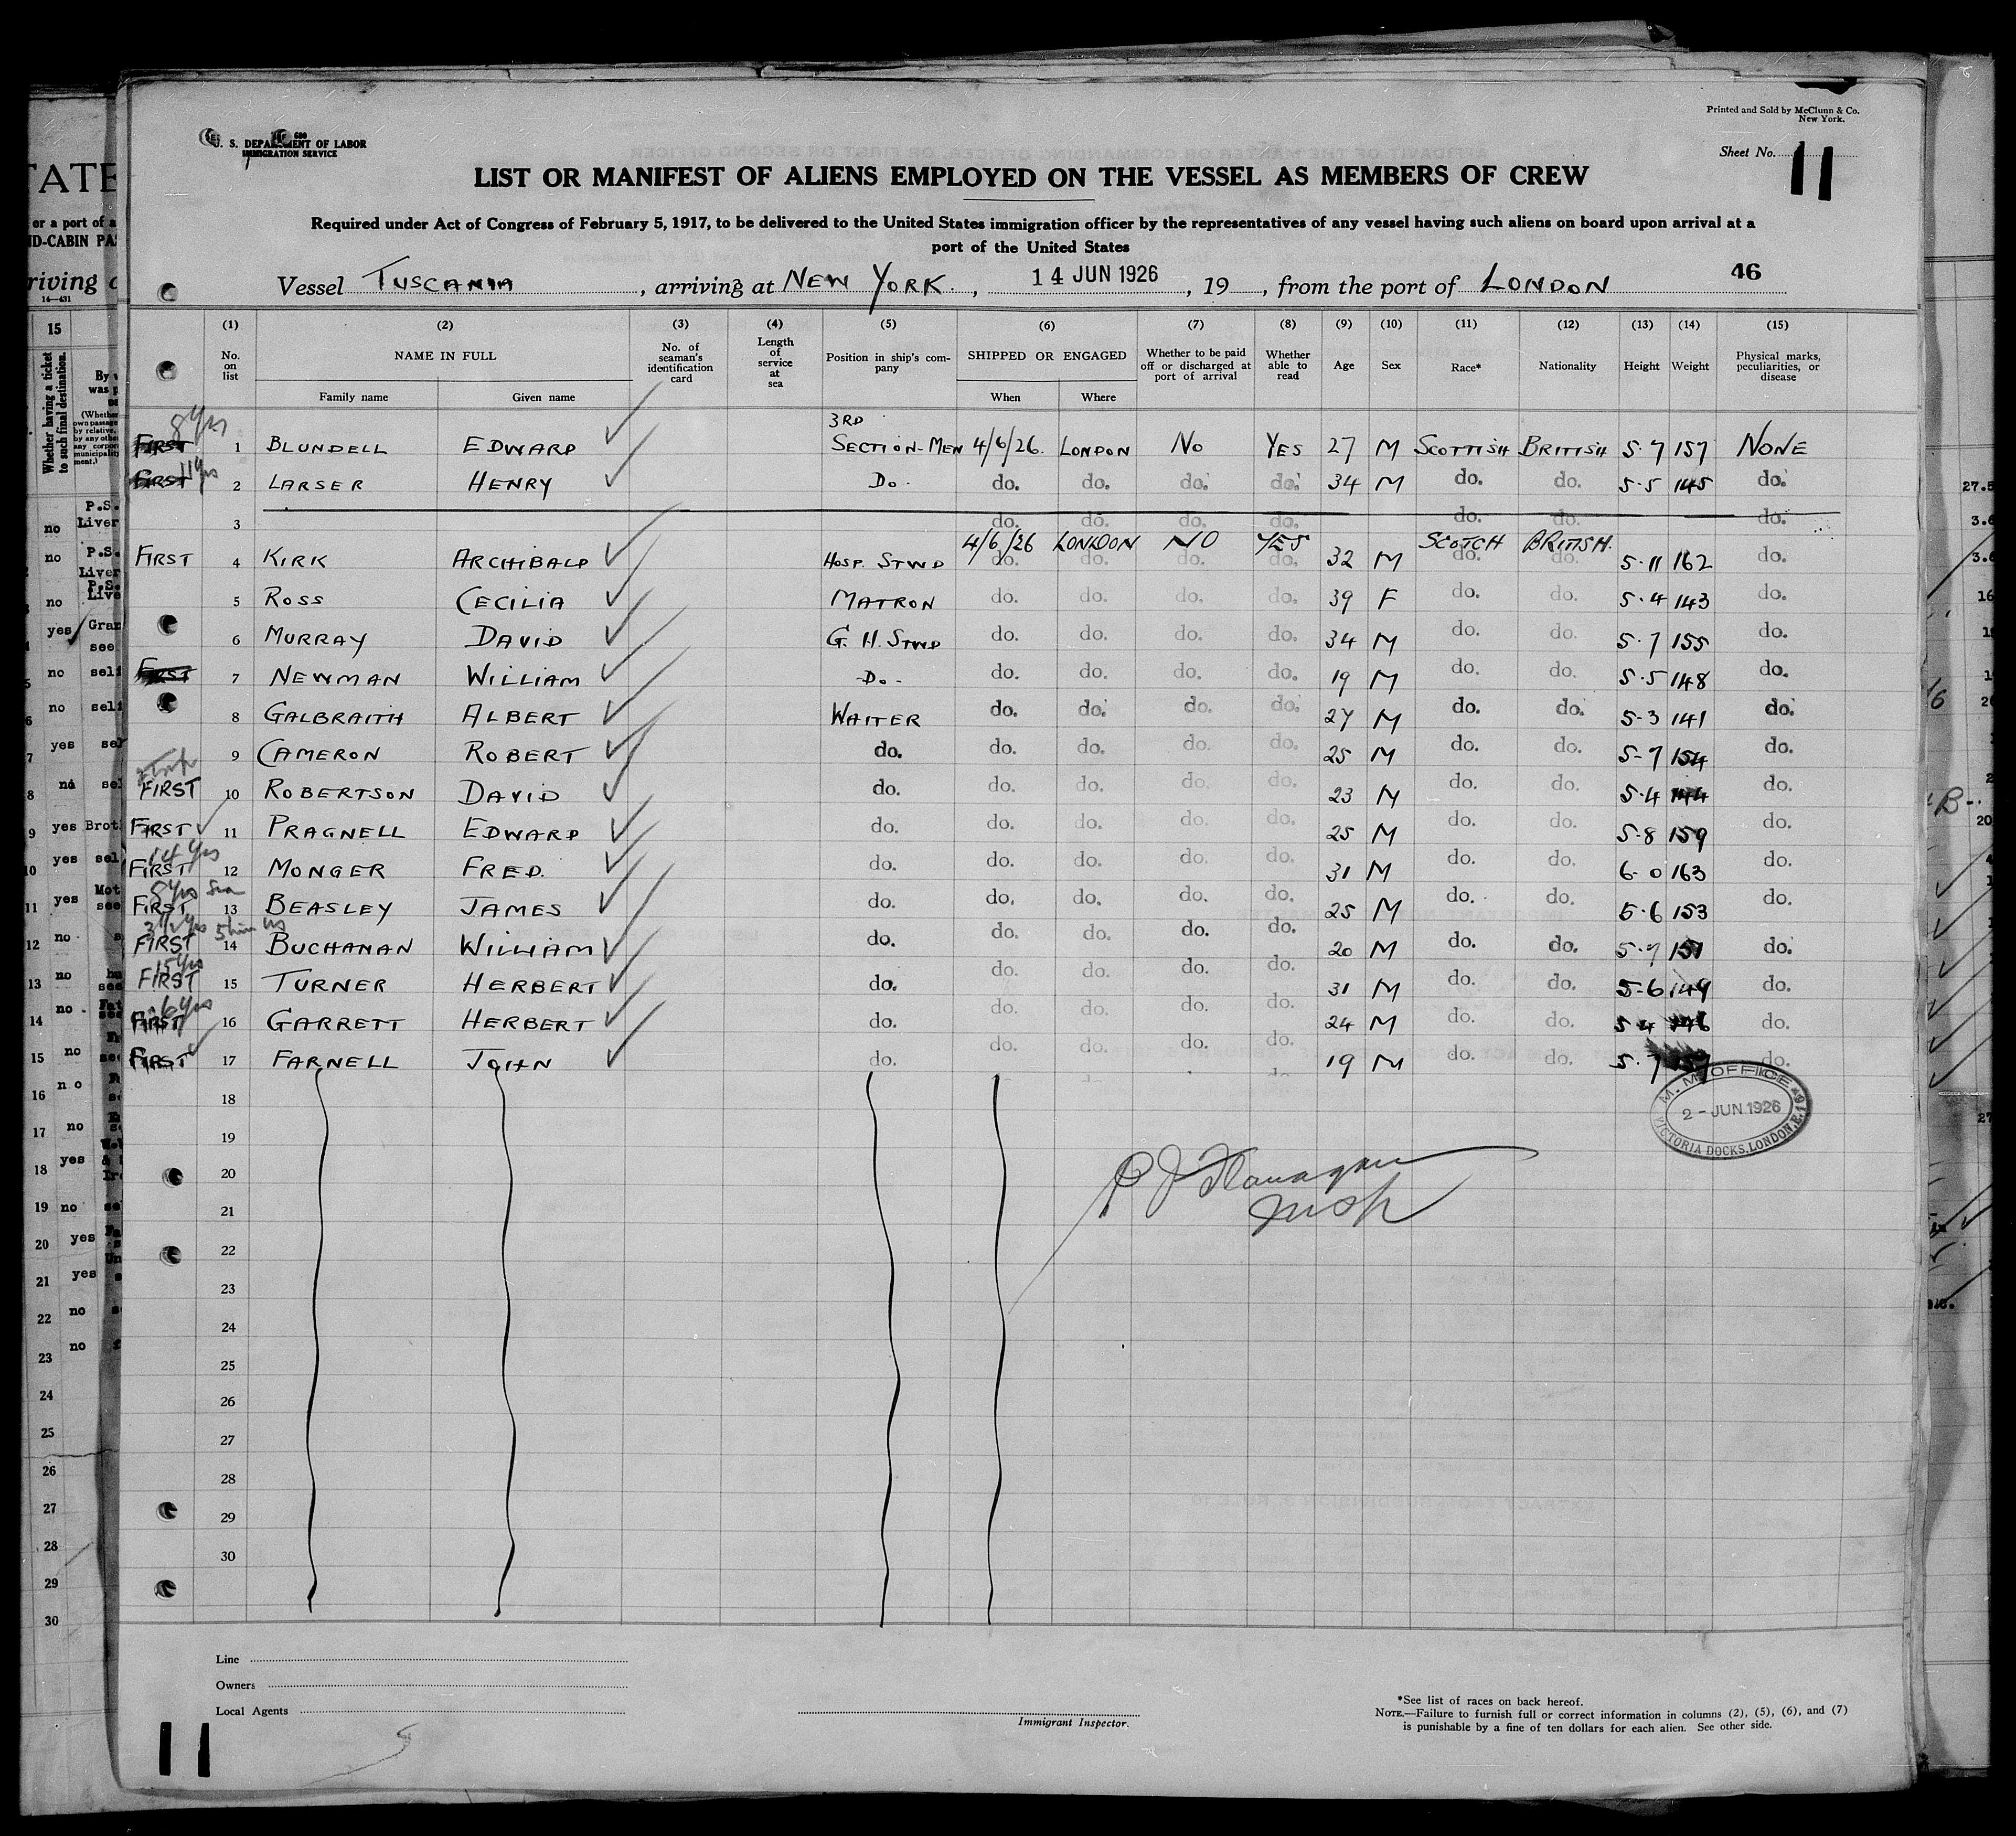 Printed and Sold by McClunn & Co.
New York.
U. S. DEPARTMENT OF LABOR
IMMIGRATION SERVICE
Sheet No. 11
LIST OR MANIFEST OF ALIENS EMPLOYED ON THE VESSEL AS MEMBERS OF CREW
Required under Act of Congress of February 5, 1917, to be delivered to the United States immigration officer by the representatives of any vessel having such aliens on board upon arrival at a
port of the United States
46
Vessel TUSCANIA, arriving at NEW YORK., 14 JUN 1926, 19, from the port of LONDON
(1) (2) (3) (4) (5) (6) (7) (8) (9) (10) (11) (12) (13) (14) (15)
No. on list NAME IN FULL Family name Given name No. of seaman's identification card Length of service at sea Position in ship's company SHIPPED OR ENGAGED When Where Whether to be paid off or discharged at port of arrival Whether able to read Age Sex Race* Nationality Height Weight Physical marks, peculiarities, or disease
8 yrs
3RD
FIRST 1 BLUNDELL EDWARD SECTION-MEN 4/6/26. LONDON NO YES 27 M SCOTTISH BRITISH 5.7 157 NONE
FIRST 11 yrs 2 LARSER HENRY Do. do. do. do. do. 34 M do. do. 5.5 145 do.
3 do. do. do. do. do. do. do.
4/6/26 LONDON NO YES SCOTCH BRITISH.
FIRST 4 KIRK ARCHIBALD HOSP. STWD do. do. do. do. 32 M do. do. 5.11 162 do.
5 ROSS CECILIA MATRON do. do. do. do. 39 F do. do. 5.4 143 do.
6 MURRAY DAVID G. H. STWD do. do. do. do. 34 M do. do. 5.7 155 do.
FIRST 7 NEWMAN WILLIAM -Do- do. do. do. do. 19 M do. do. 5.5 148 do.
8 GALBRAITH ALBERT WAITER do. do. do. do. 27 M do. do. 5-3 141 do.
9 CAMERON ROBERT do. do. do. do. do. 25 M do. do. 5-7 154 do.
FIRST 10 ROBERTSON DAVID do. do. do. do. do. 23 M do. do. 5.4 144 do.
FIRST 11 PRAGNELL EDWARD do. do. do. do. do. 25 M do. do. 5-8 159 do.
14 yrs
FIRST 12 MONGER FRED. do. do. do. do. do. 31 M do. do. 6-0 163 do.
8 yrs
FIRST 13 BEASLEY JAMES do. do. do. do. do. 25 M do. do. 5.6 153 do.
FIRST 14 BUCHANAN WILLIAM do. do. do. do. do. 20 M do. do. 5.7 151 do.
15 yrs
FIRST 15 TURNER HERBERT do. do. do. do. do. 31 M do. do. 5-6 149 do.
6 yrs
FIRST 16 GARRETT HERBERT do. do. do. do. do. 24 M do. do. 5.4 do.
FIRST 17 FARNELL JOHN do. do. do. do. do. 19 M do. do. 5.7 do.
18
M. M. OFFICE
2-JUN.1926
VICTORIA DOCKS, LONDON, E.16
19
20
P J Flanagan
Insp
21
22
23
24
25
26
27
28
29
30
Line
Owners
Local Agents
Immigrant Inspector.
*See list of races on back hereof.
NOTE.—Failure to furnish full or correct information in columns (2), (5), (6), and (7)
is punishable by a fine of ten dollars for each alien. See other side.
11